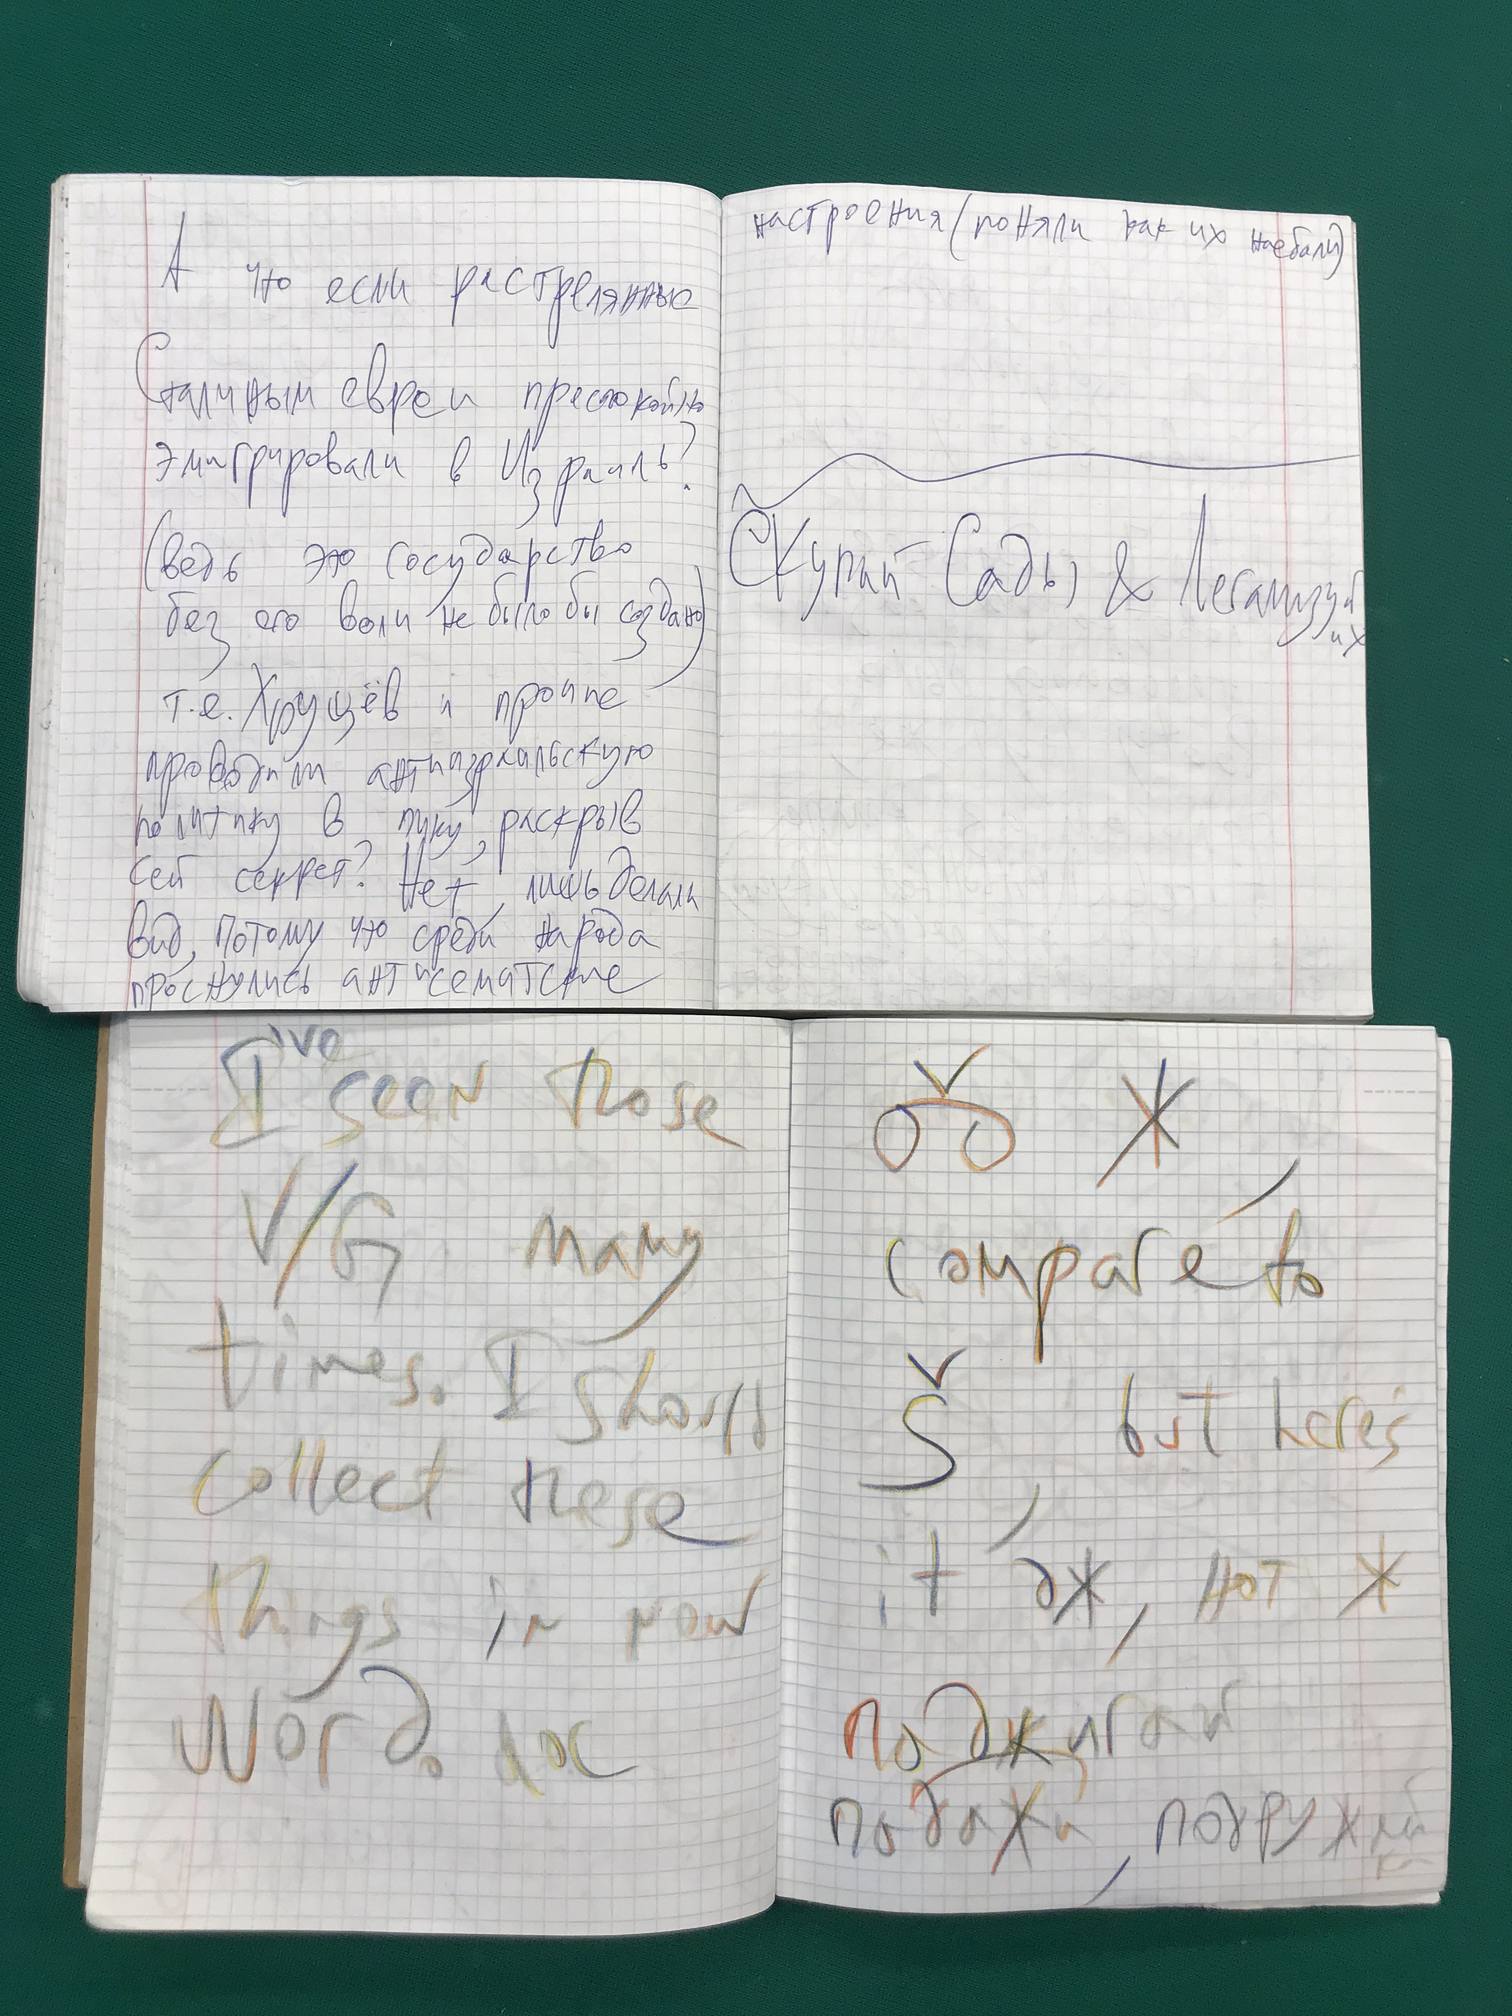 А что если растрелянные
Сталиным евреи преспокойно
эмигрировали в Израиль?
(ведь это государство
без его воли не было бы создано)
т.е. Хрущёв и прочие
проводили антиизраильскую
политику в пику, раскрыв
сей секрет? Нет, лишь делали
вид, потому что среди народа
проснулись антисематские
настроения (поняли как их наебали)
Скупай Сады & Легализуй
их
I've seen those
V/G many
times. I should
collect these
things in new
Word. doc
Ж
compare to
Š, but here's
it дж, not ж
поджигай
подажи, подружки